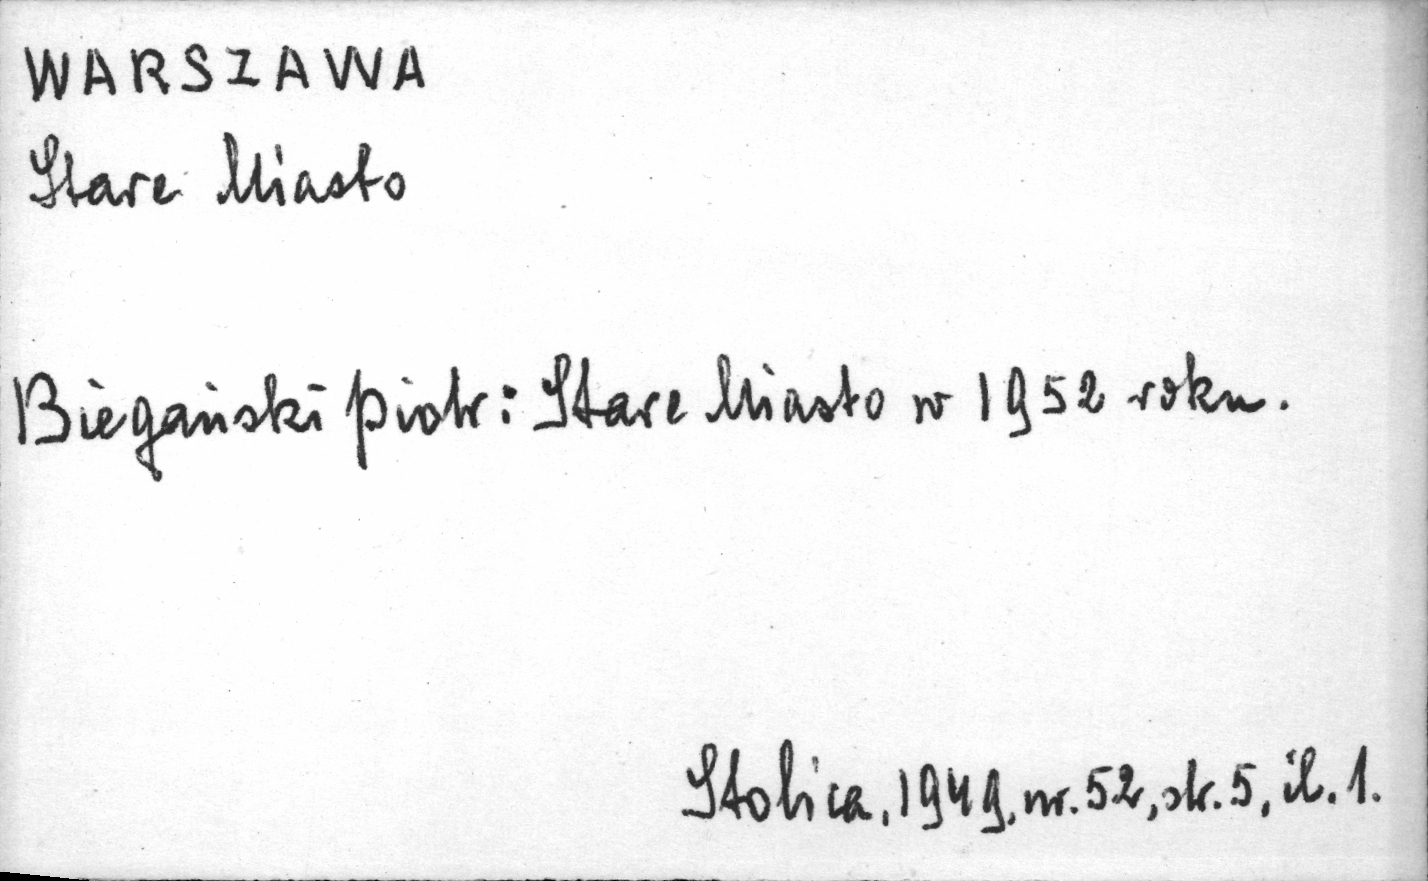 WARSZAWA
Stare Miasto
Biegański Piotr: Stare Miasto w 1952 roku.
Stolica, 1949, nr. 52, str. 5, il. 1.